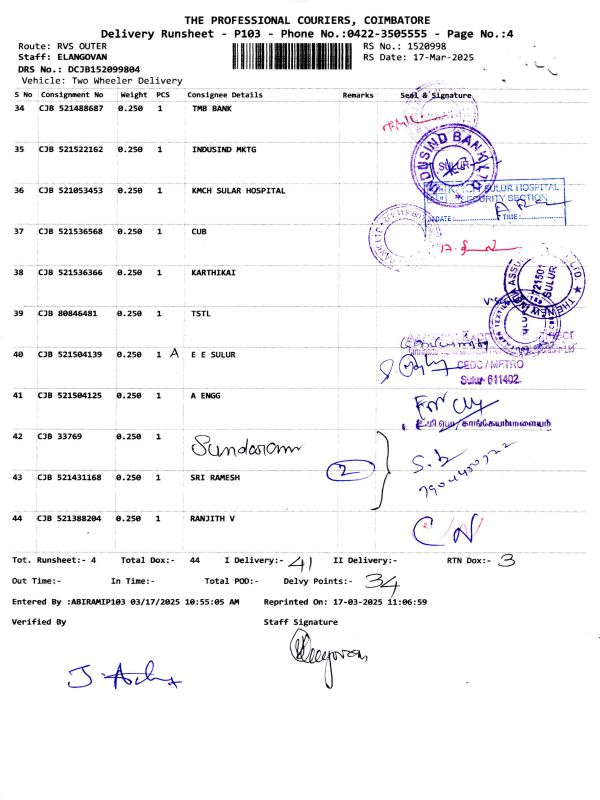 THE PROFESSIONAL COURIERS, COIMBATORE
Delivery Runsheet - P103 - Phone No.:0422-3505555 - Page No.:4
Route: RVS OUTER RS No.: 1520998
Staff: ELANGOVAN RS Date: 17-Mar-2025
DRS No.: DCJB152099804
Vehicle: Two Wheeler Delivery
S No Consignment No Weight PCS Consignee Details Remarks Seal & Signature
34 CJB 521488687 0.250 1 TMB BANK
35 CJB 521522162 0.250 1 INDUSIND MKTG
INDUSIND BANK LTD
SULUR
36 CJB 521053453 0.250 1 KMCH SULAR HOSPITAL
SULUR HOSPITAL
SECURITY SECTION
DATE: TIME:
37 CJB 521536568 0.250 1 CUB
38 CJB 521536366 0.250 1 KARTHIKAI
721501
SULUR
39 CJB 80846481 0.250 1 TSTL
40 CJB 521504139 0.250 1 A E E SULUR
CEDC / METRO
Sulur 641402
41 CJB 521504125 0.250 1 A ENGG
For
42 CJB 33769 0.250 1 Sundaram
2
43 CJB 521431168 0.250 1 SRI RAMESH
44 CJB 521388204 0.250 1 RANJITH V
Tot. Runsheet:- 4 Total Dox:- 44 I Delivery:- 41 II Delivery:- RTN Dox:- 3
Out Time:- In Time:- Total POD:- Delvy Points:- 34
Entered By :ABIRAMIP103 03/17/2025 10:55:05 AM Reprinted On: 17-03-2025 11:06:59
Verified By Staff Signature